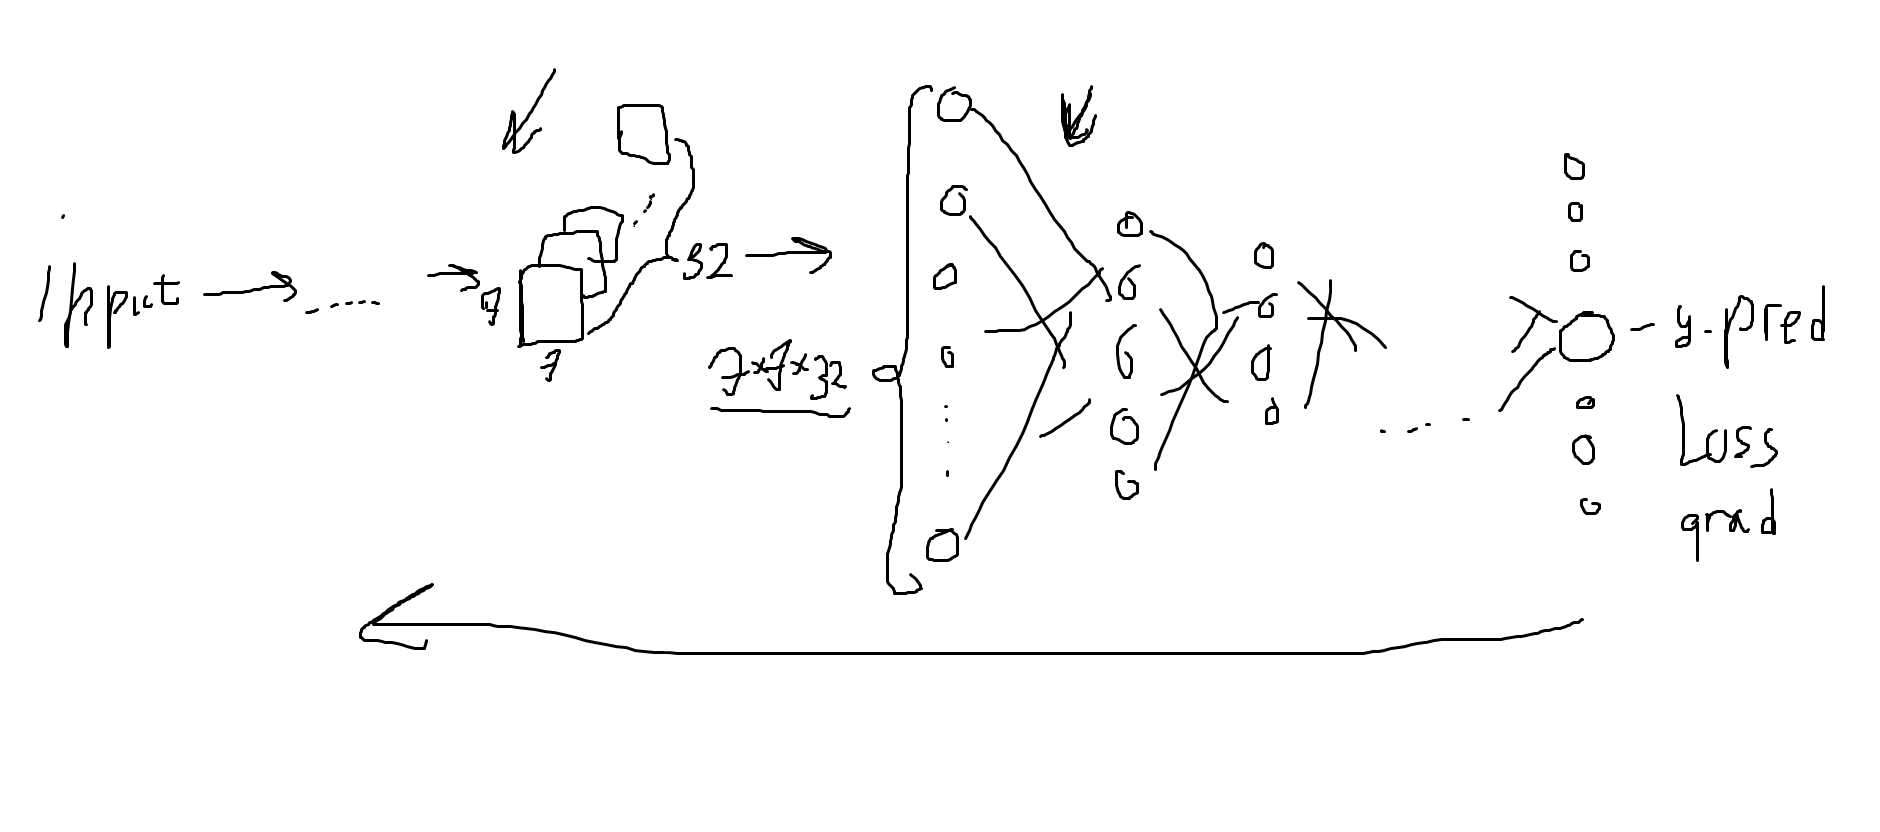 Input
7
7
32
7x7x32
y-pred
Loss
grad